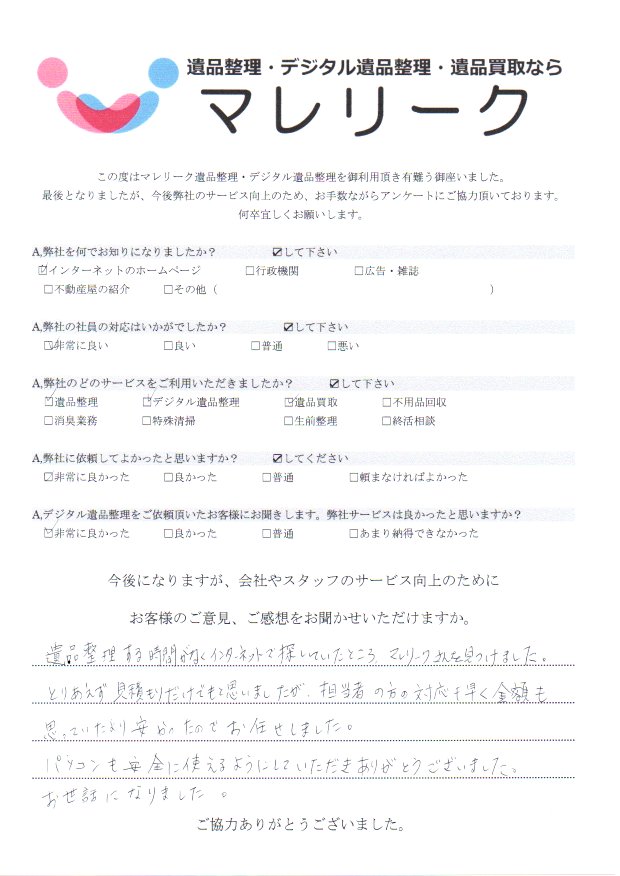 遺品整理・デジタル遺品整理・遺品買取なら
マレリーク
この度はマレリーク遺品整理・デジタル遺品整理を御利用頂き有難う御座いました。
最後となりましたが、今後弊社のサービス向上のため、お手数ながらアンケートにご協力頂いております。
何卒宜しくお願いします。
A,弊社を何でお知りになりましたか？ ☑して下さい
☑インターネットのホームページ □行政機関 □広告・雑誌
□不動産屋の紹介 □その他（ ）
A,弊社の社員の対応はいかがでしたか？ ☑して下さい
☑非常に良い □良い □普通 □悪い
A,弊社のどのサービスをご利用いただきましたか？ ☑して下さい
☑遺品整理 ☑デジタル遺品整理 ☑遺品買取 □不用品回収
□消臭業務 □特殊清掃 □生前整理 □終活相談
A,弊社に依頼してよかったと思いますか？ ☑してください
☑非常に良かった □良かった □普通 □頼まなければよかった
A,デジタル遺品整理をご依頼頂いたお客様にお聞きします。弊社サービスは良かったと思いますか？
☑非常に良かった □良かった □普通 □あまり納得できなかった
今後になりますが、会社やスタッフのサービス向上のために
お客様のご意見、ご感想をお聞かせいただけますか。
遺品整理する時間がなくインターネットで探していたところ、マレリークさんを見つけました。
とりあえず見積もりだけでもと思いましたが、担当者の方の対応も早く金額も
思っていたより安かったのでお任せしました。
パソコンも安全に使えるようにしていただきありがとうございました。
お世話になりました。
ご協力ありがとうございました。